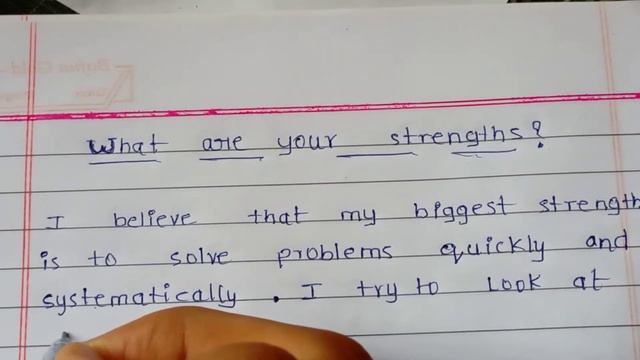 What are your strengths?
I believe that my biggest strength
is to solve problems quickly and
systematically. I try to Look at